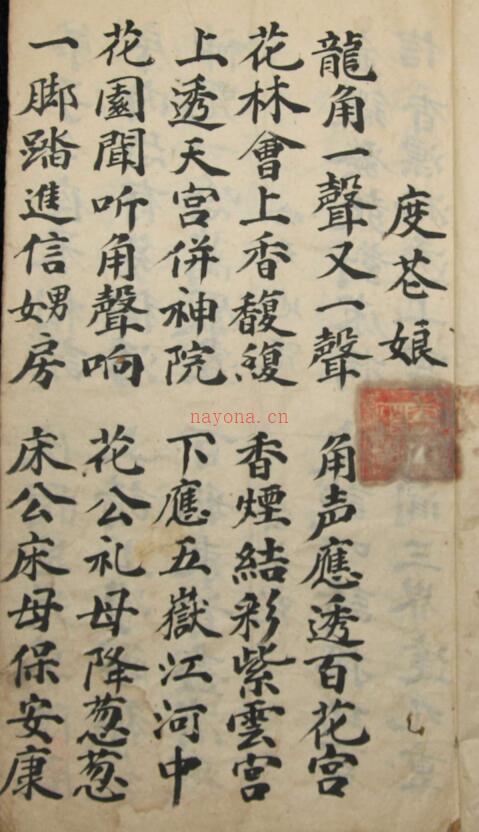 度苍娘
龍角一聲又一聲 角声應透百花宫
花林會上香馥複 香煙結彩紫雲宫
上透天宫併神院 下應五嶽江河中
花園聞听角聲响 花公礼母降葱葱
一脚踏進信男女房 床公床母保安康
nayona.cn